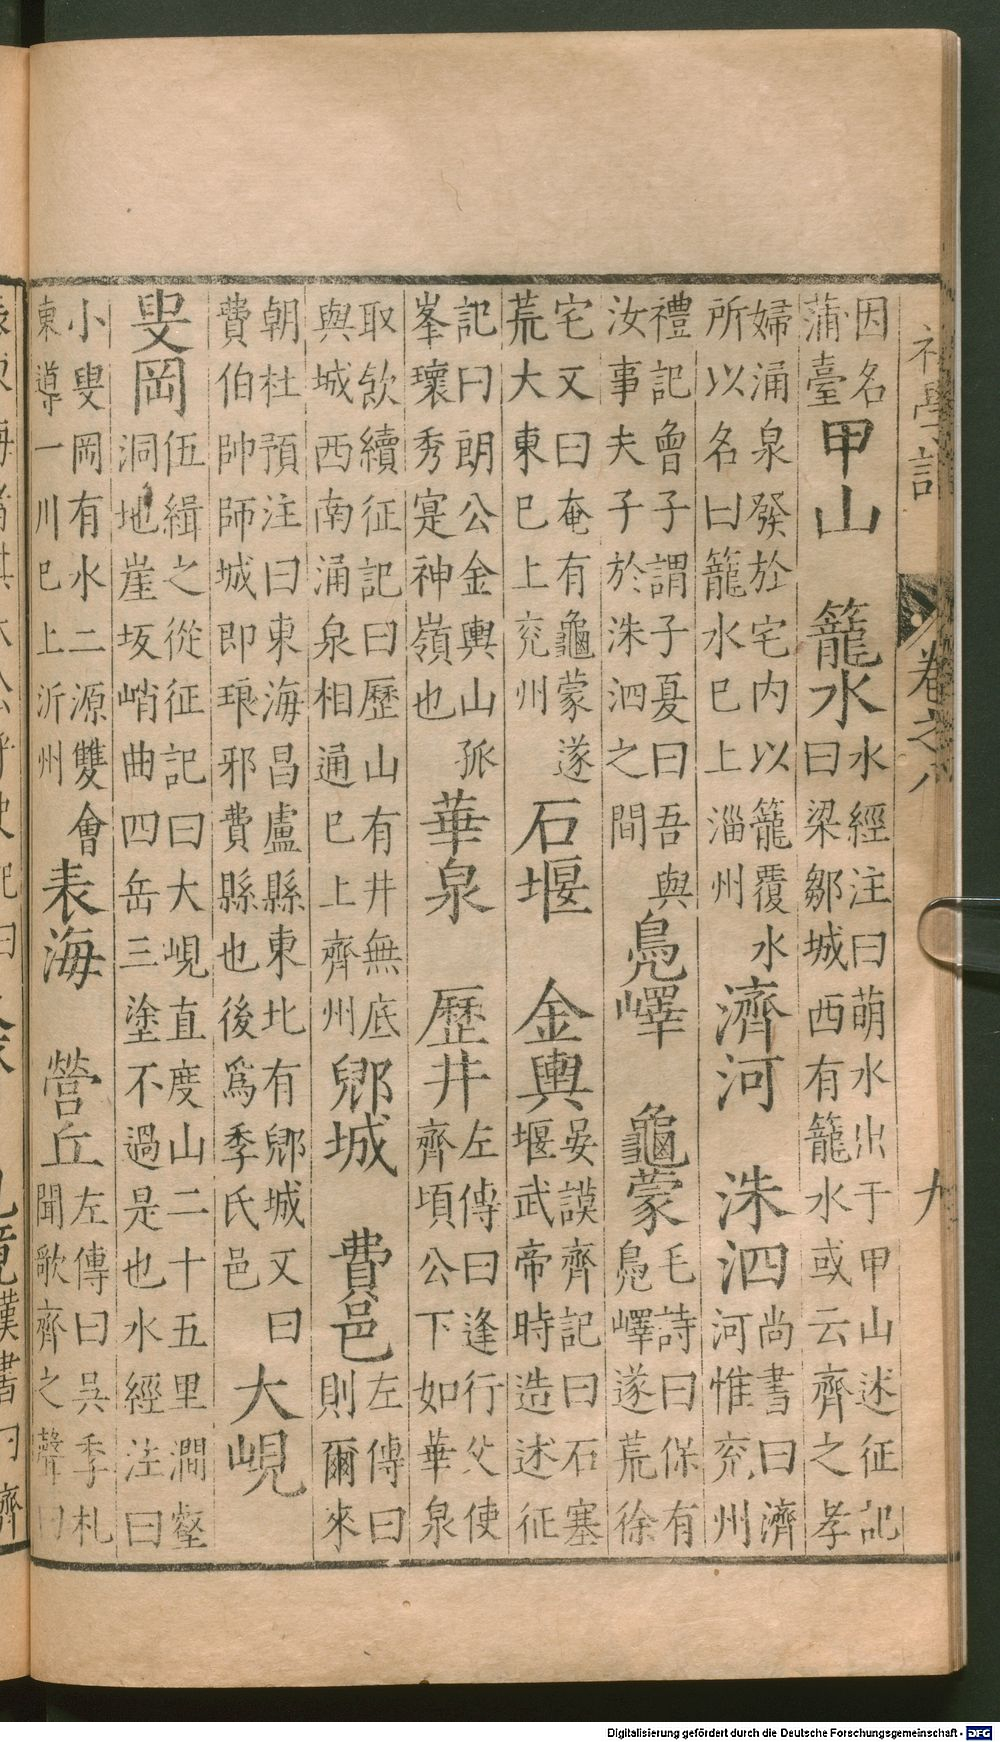 初學記 卷之八 九
因名
蒲臺
甲山 籠水
水經注曰萌水出于甲山述征記
曰梁鄒城西有籠水或云齊之孝
婦涌泉發於宅内以籠覆水
所以名曰籠水已上淄州
濟河 洙泗
尚書曰濟
河惟兖州
禮記曾子謂子夏曰吾與
汝事夫子於洙泗之間
鳧嶧 龜蒙
毛詩曰保有
鳧嶧遂荒徐
宅又曰奄有龜蒙遂
荒大東已上兖州
石堰 金輿
晏謨齊記曰石塞
堰武帝時造述征
記曰朗公金輿山孤
峯瓌秀寔神嶺也
華泉 歷井
左傳曰逢行父使
齊頃公下如華泉
取飲續征記曰歷山有井無底
與城西南涌泉相通已上齊州
鄉城 費邑
左傳曰
則爾來
朝杜預注曰東海昌盧縣東北有鄉城又曰
費伯帥師城即琅邪費縣也後爲季氏邑
大峴
叟岡
伍緝之從征記曰大峴直度山二十五里澗壑
洞地崖坂峭曲四岳三塗不過是也水經注曰
小叟岡有水二源雙會
東導一川已上沂州
表海 營丘
左傳曰吳季札
聞歌齊之聲曰
Digitalisierung gefördert durch die Deutsche Forschungsgemeinschaft - DFG